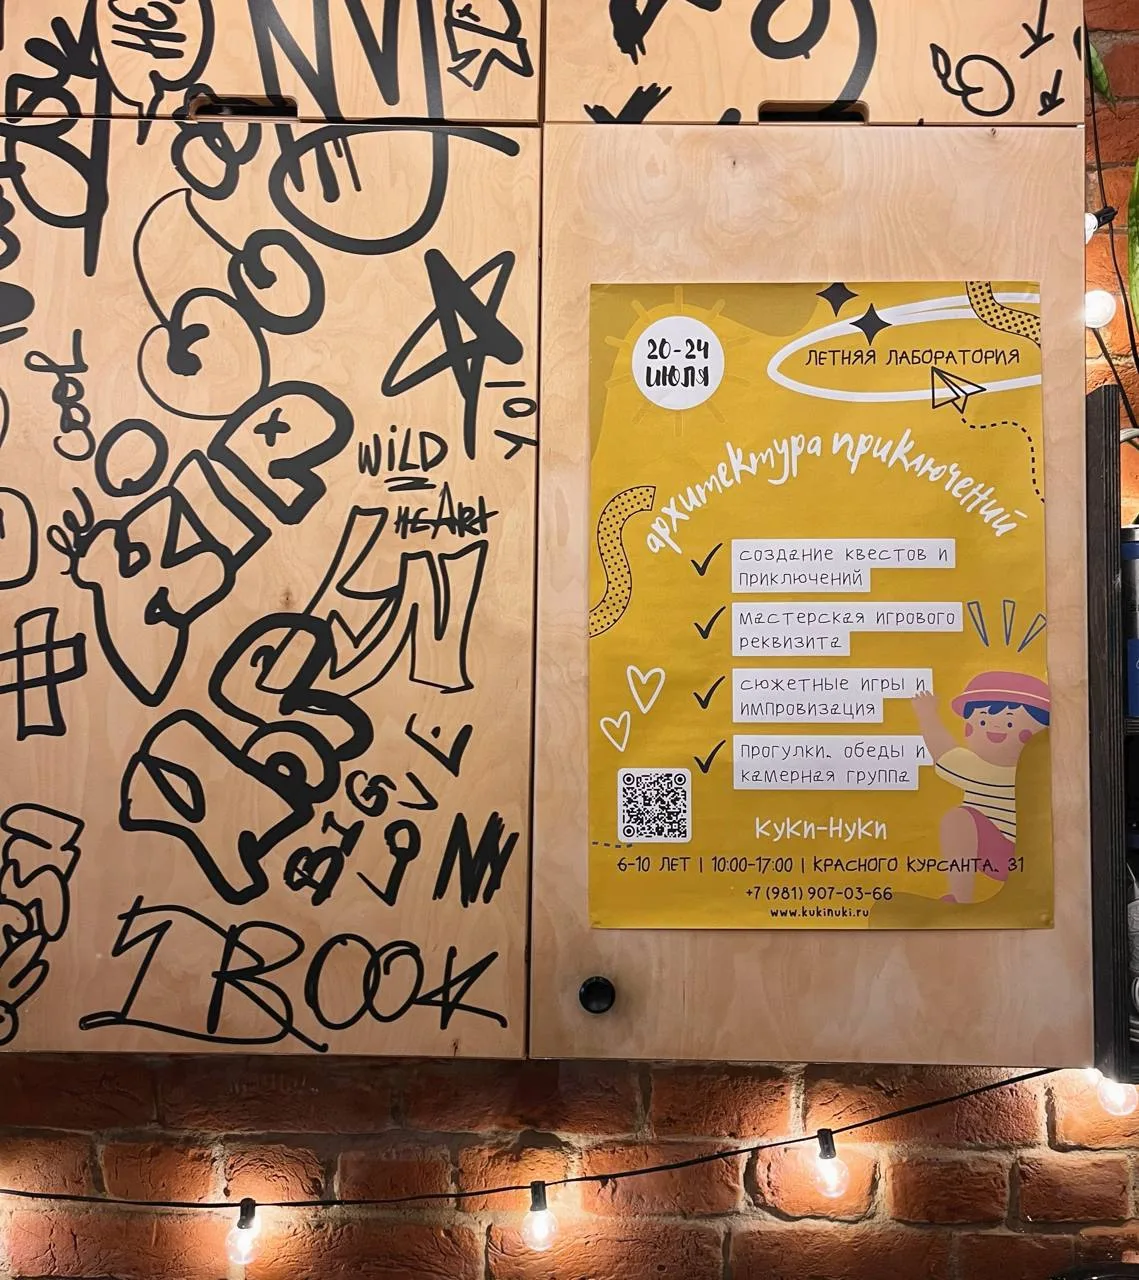 COOL
YO!
WiLD
HEART
BiG
LOVE
BOOK
20-24
ИЮЛЯ
ЛЕТНЯЯ ЛАБОРАТОРИЯ
архитектура приключений
создание квестов и
приключений
мастерская игрового
реквизита
сюжетные игры и
импровизация
прогулки, обеды и
камерная группа
КуКи-НуКи
6-10 ЛЕТ | 10:00-17:00 | КРАСНОГО КУРСАНТА, 31
+7 (981) 907-03-66
www.kukinuki.ru